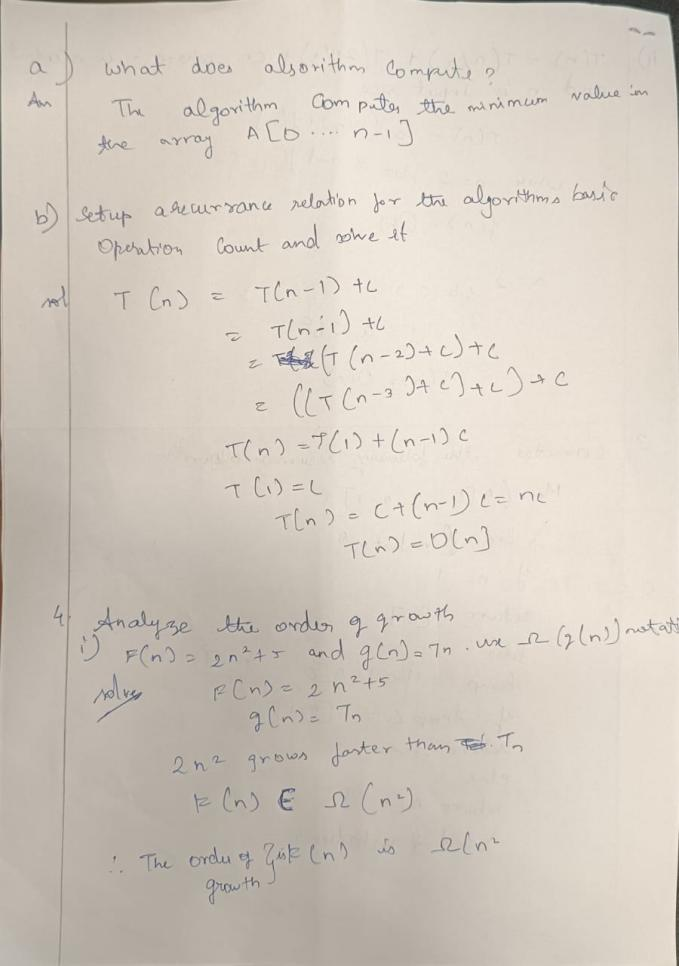 a) what does alsorithm Compute?
An The algorithm Computes the minimum value in
the array A[0 .... n-1]
b) Setup a recurrance relation for the algorithms basic
Operation Count and solve it
sol T(n) = T(n-1) + c
= T(n-1) + c
= (T(n-2) + c) + c
= ((T(n-3) + c) + c) + c
T(n) = T(1) + (n-1) c
T(1) = c
T(n) = c + (n-1) c = nc
T(n) = O(n]
4. Analyze the order of growth
i) F(n) = 2n² + 5 and g(n) = 7n . use Ω (g(n)) notati
solve F(n) = 2n² + 5
g(n) = 7n
2n² grows faster than 7n
F(n) ∈ Ω (n²)
∴ The order of F(n) is Ω(n²
growth